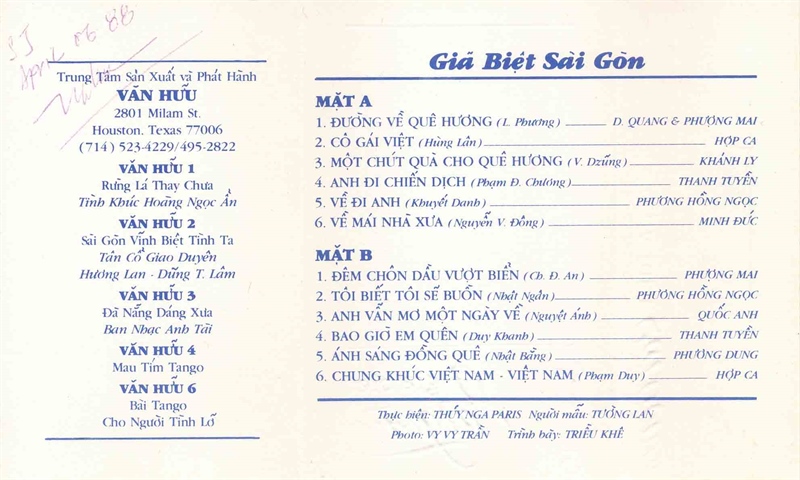 SJ
April 05 88
Trung Tâm Sản Xuất và Phát Hành
VĂN HỮU
2801 Milam St.
Houston. Texas 77006
(714) 523-4229/495-2822
VĂN HỮU 1
Rừng Lá Thay Chưa
Tình Khúc Hoàng Ngọc Ẩn
VĂN HỮU 2
Sài Gòn Vĩnh Biệt Tình Ta
Tân Cổ Giao Duyên
Hương Lan - Dũng T. Lâm
VĂN HỮU 3
Đà Nẵng Dáng Xưa
Ban Nhạc Anh Tài
VĂN HỮU 4
Mau Tím Tango
VĂN HỮU 6
Bài Tango
Cho Người Tình Lỡ
Giã Biệt Sài Gòn
MẶT A
1. ĐƯỜNG VỀ QUÊ HƯƠNG (L. Phương) D. QUANG & PHƯỢNG MAI
2. CÔ GÁI VIỆT (Hùng Lân) HỢP CA
3. MỘT CHÚT QUÀ CHO QUÊ HƯƠNG (V. Dzũng) KHÁNH LY
4. ANH ĐI CHIẾN DỊCH (Phạm Đ. Chương) THANH TUYỀN
5. VỀ ĐI ANH (Khuyết Danh) PHƯƠNG HỒNG NGỌC
6. VỀ MÁI NHÀ XƯA (Nguyễn V. Đông) MINH ĐỨC
MẶT B
1. ĐÊM CHÔN DẦU VƯỢT BIỂN (Ch. Đ. An) PHƯỢNG MAI
2. TÔI BIẾT TÔI SẼ BUỒN (Nhật Ngân) PHƯƠNG HỒNG NGỌC
3. ANH VẪN MƠ MỘT NGÀY VỀ (Nguyệt Ánh) QUỐC ANH
4. BAO GIỜ EM QUÊN (Duy Khanh) THANH TUYỀN
5. ÁNH SÁNG ĐỒNG QUÊ (Nhật Bằng) PHƯƠNG DUNG
6. CHUNG KHÚC VIỆT NAM - VIỆT NAM (Phạm Duy) HỢP CA
Thực hiện: THÚY NGA PARIS Người mẫu: TƯỜNG LAN
Photo: VY VY TRẦN Trình bày: TRIỀU KHÊ